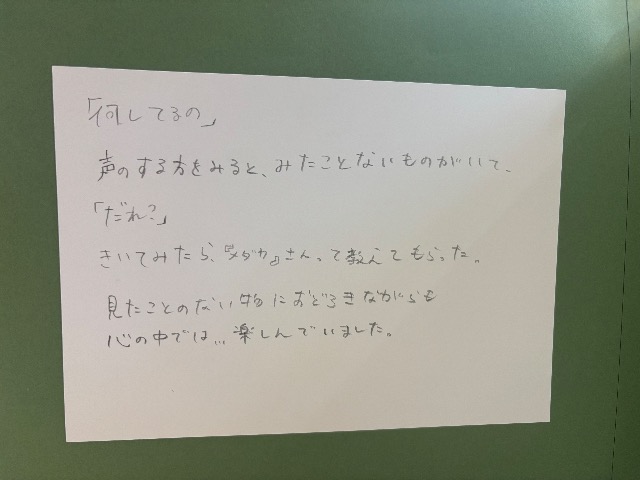 「何してるの」
声のする方をみると、みたことないものがいて、
「だれ？」
きいてみたら、『メダカ』さん、って教えてもらった。
見たことのない物におどろきながらも
心の中では…楽しんでいました。